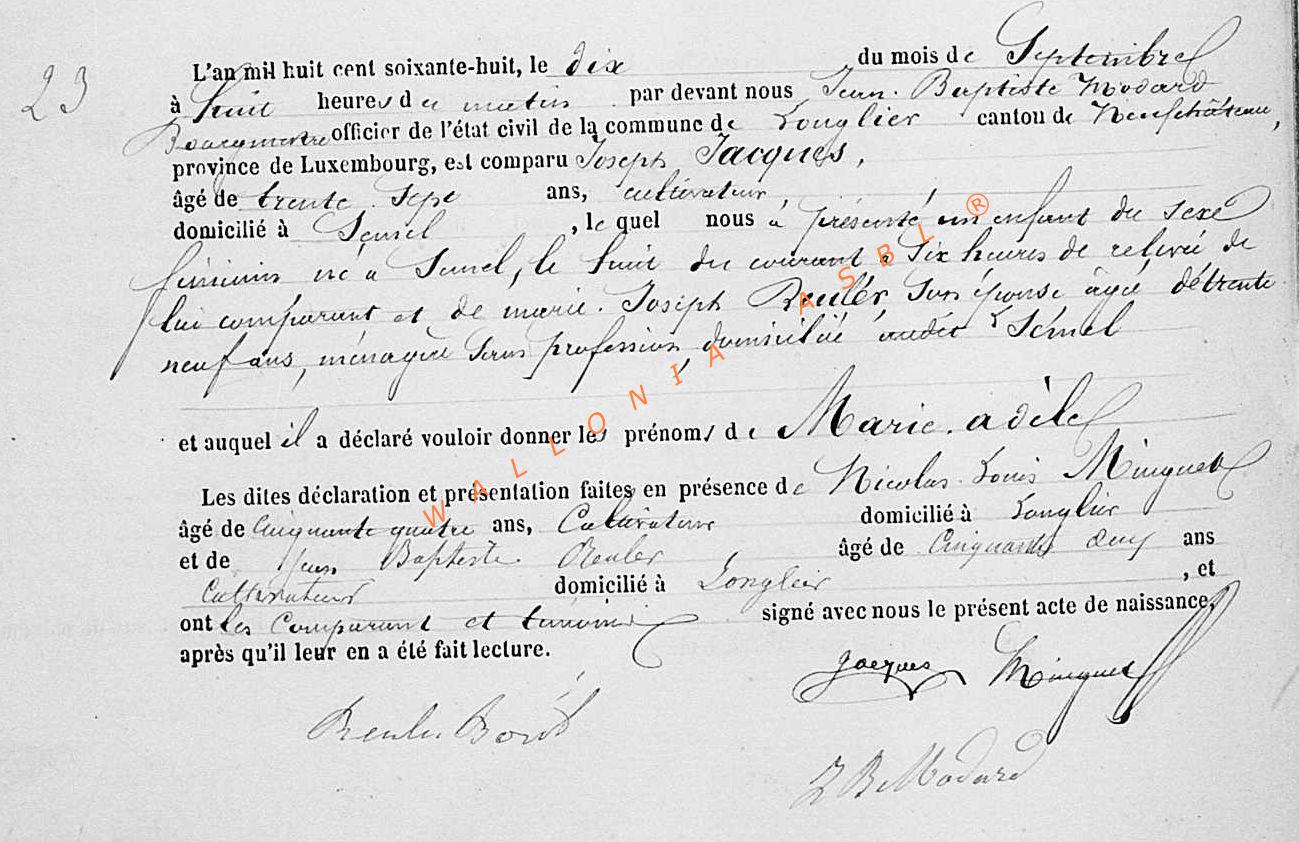 23
L'an mil huit cent soixante-huit, le dix du mois de Septembre
à huit heures du matin par devant nous Jean Baptiste Modard
Bourgmestre officier de l'état civil de la commune de Longlier canton de Neufchâteau,
province de Luxembourg, est comparu Joseph Jacques,
âgé de trente sept ans, cultivateur,
domicilié à Semel, le quel nous a présenté un enfant du sexe
féminin né a Semel, le huit du courant a six heures de relevée de
lui comparant et de marie Joseph Reuler son épouse âgée de trente
neuf ans, ménagère sans profession, domiciliée audit Sémel
et auquel il a déclaré vouloir donner les prénoms de Marie adèle
Les dites déclaration et présentation faites en présence de Nicolas Louis Minguet
âgé de cinquante quatre ans, Cultivateur domicilié à Longlier
et de Jean Baptiste Reuler âgé de cinquante deux ans
Cultivateur domicilié à Longlier, et
ont les comparant et témoins signé avec nous le présent acte de naissance,
après qu'il leur en a été fait lecture.
Jacques Minguet
Reuler
J B Modard
WALLONIA ASBL ®